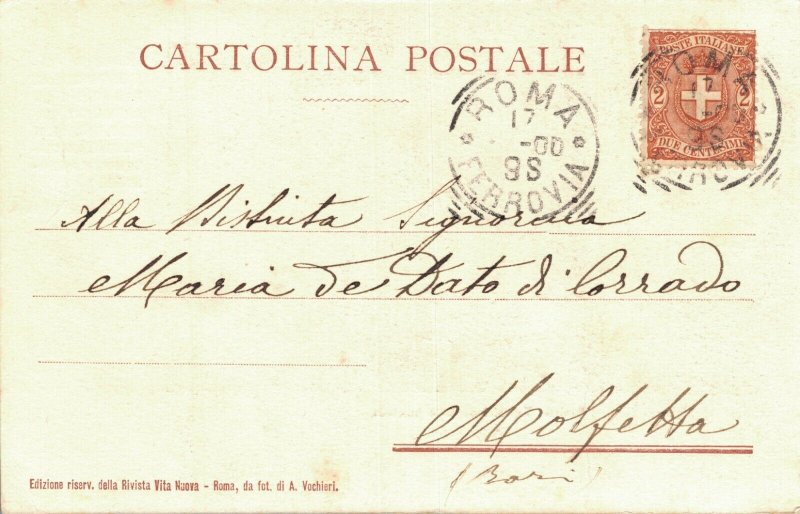 CARTOLINA POSTALE
POSTE ITALIANE
2 2
DUE CENTESIMI
ROMA
17
-00
8S
FERROVIA
ROMA
17
8S
FERROVIA
Alla Distinta Signorina
Maria de Dato di Corrado
Molfetta
(Bari)
Edizione riserv. della Rivista Vita Nuova - Roma, da fot. di A. Vochieri.